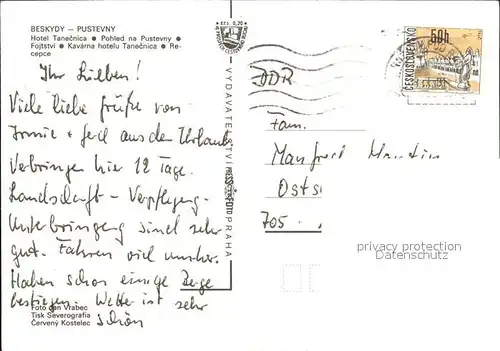 BESKYDY — PUSTEVNY
Hotel Tanečnica • Pohled na Pustevny •
Fojtství • Kavárna hotelu Tanečnica • Re-
cepce
Ihr Lieben!
Viele liebe Grüße von
Irmie + Gerd aus dem Urlaub
Verbringen hier 12 Tage.
Landschaft - Verpflegung -
Unterbringung sind sehr
gut. Fahren viel umher.
Haben schon einige Berge
bestiegen. Wetter ist sehr
schön
Foto Jan Vrabec
Tisk Severografia
Červený Kostelec
Kčs 0,70
VYDAVATELSTVÍ PRESSFOTO PRAHA
50h
ČESKOSLOVENSKO
DDR
Fam.
Manfred
705
privacy protection
Datenschutz